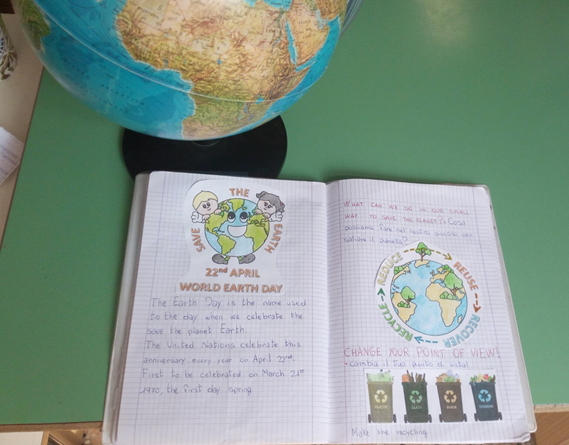 SAVE THE EARTH
22nd APRIL
WORLD EARTH DAY
The Earth Day is the name used
to the day when we celebrate the
save the planet Earth.
The United Nations celebrate this
anniversary every year on April 22nd.
First to be celebrated on March 21st
1970, the first day spring
WHAT CAN WE DO IN OUR SMALL
WAY TO SAVE THE PLANET? Cosa
possiamo fare nel nostro piccolo per
salvare il pianeta?
REDUCE
REUSE
RECOVER
RECYCLE
CHANGE YOUR POINT OF VIEW!
- cambia il tuo punto di vista!
Make the recycling